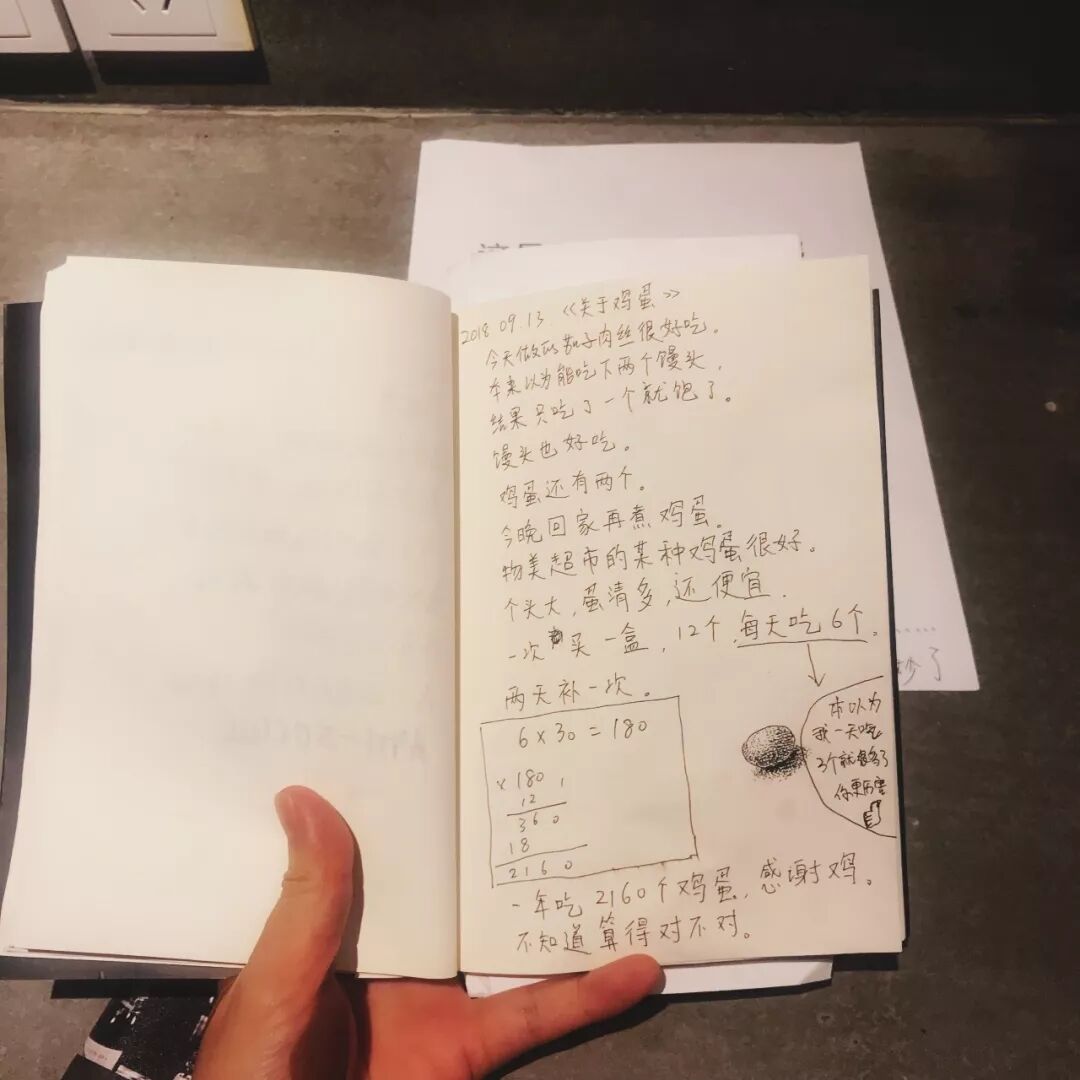 2018.09.13.《关于鸡蛋》
今天做的茄子肉丝很好吃。
本来以为能吃下两个馒头，
结果只吃了一个就饱了。
馒头也好吃。
鸡蛋还有两个。
今晚回家再煮鸡蛋。
物美超市的某种鸡蛋很好。
个头大，蛋清多，还便宜.
一次买一盒，12个，每天吃6个。
两天补一次。
6×30=180
×180
12
360
18
2160
本以为
我一天吃
3个就很多了
你更厉害
一年吃2160个鸡蛋，感谢鸡。
不知道算得对不对。
……
炒了